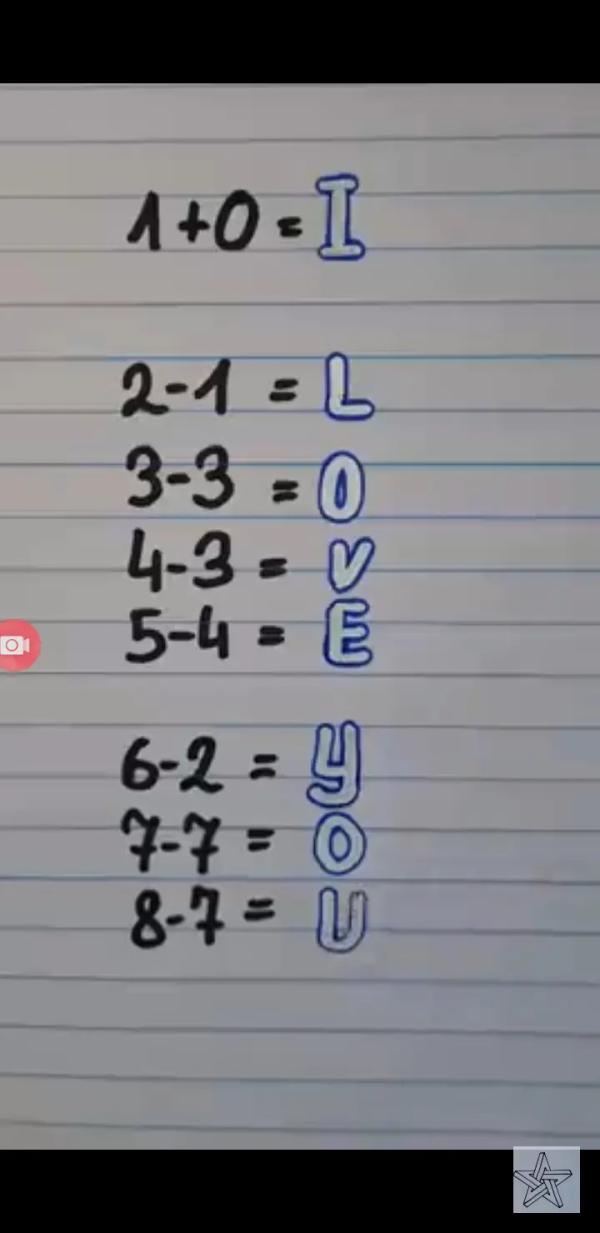 1+0 = I
2-1 = L
3-3 = O
4-3 = V
5-4 = E
6-2 = Y
7-7 = O
8-7 = U